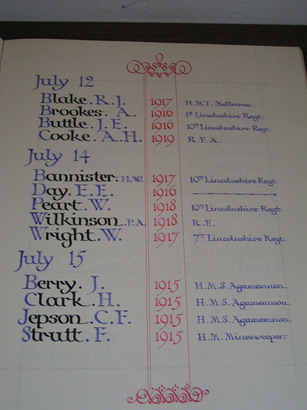 July 12
Blake. R. J. 1917 H.M.T. Melbourne.
Brookes. A. 1916 1st Lincolnshire Regt.
Buttle. J. E. 1916 10th Lincolnshire Regt.
Cooke. A. H. 1919 R.F.A.
July 14
Bannister. H.W. 1917 10th Lincolnshire Regt.
Day. E. E. 1916
Peart. W. 1918 10th Lincolnshire Regt.
Wilkinson. P.A. 1918 R.E.
Wright. W. 1917 7th Lincolnshire Regt.
July 15
Berry. J. 1915 H.M.S. Agamemnon.
Clark. H. 1915 H.M.S. Agamemnon.
Jepson. C. F. 1915 H.M.S. Agamemnon.
Strutt. F. 1915 H.M. Minesweeper.